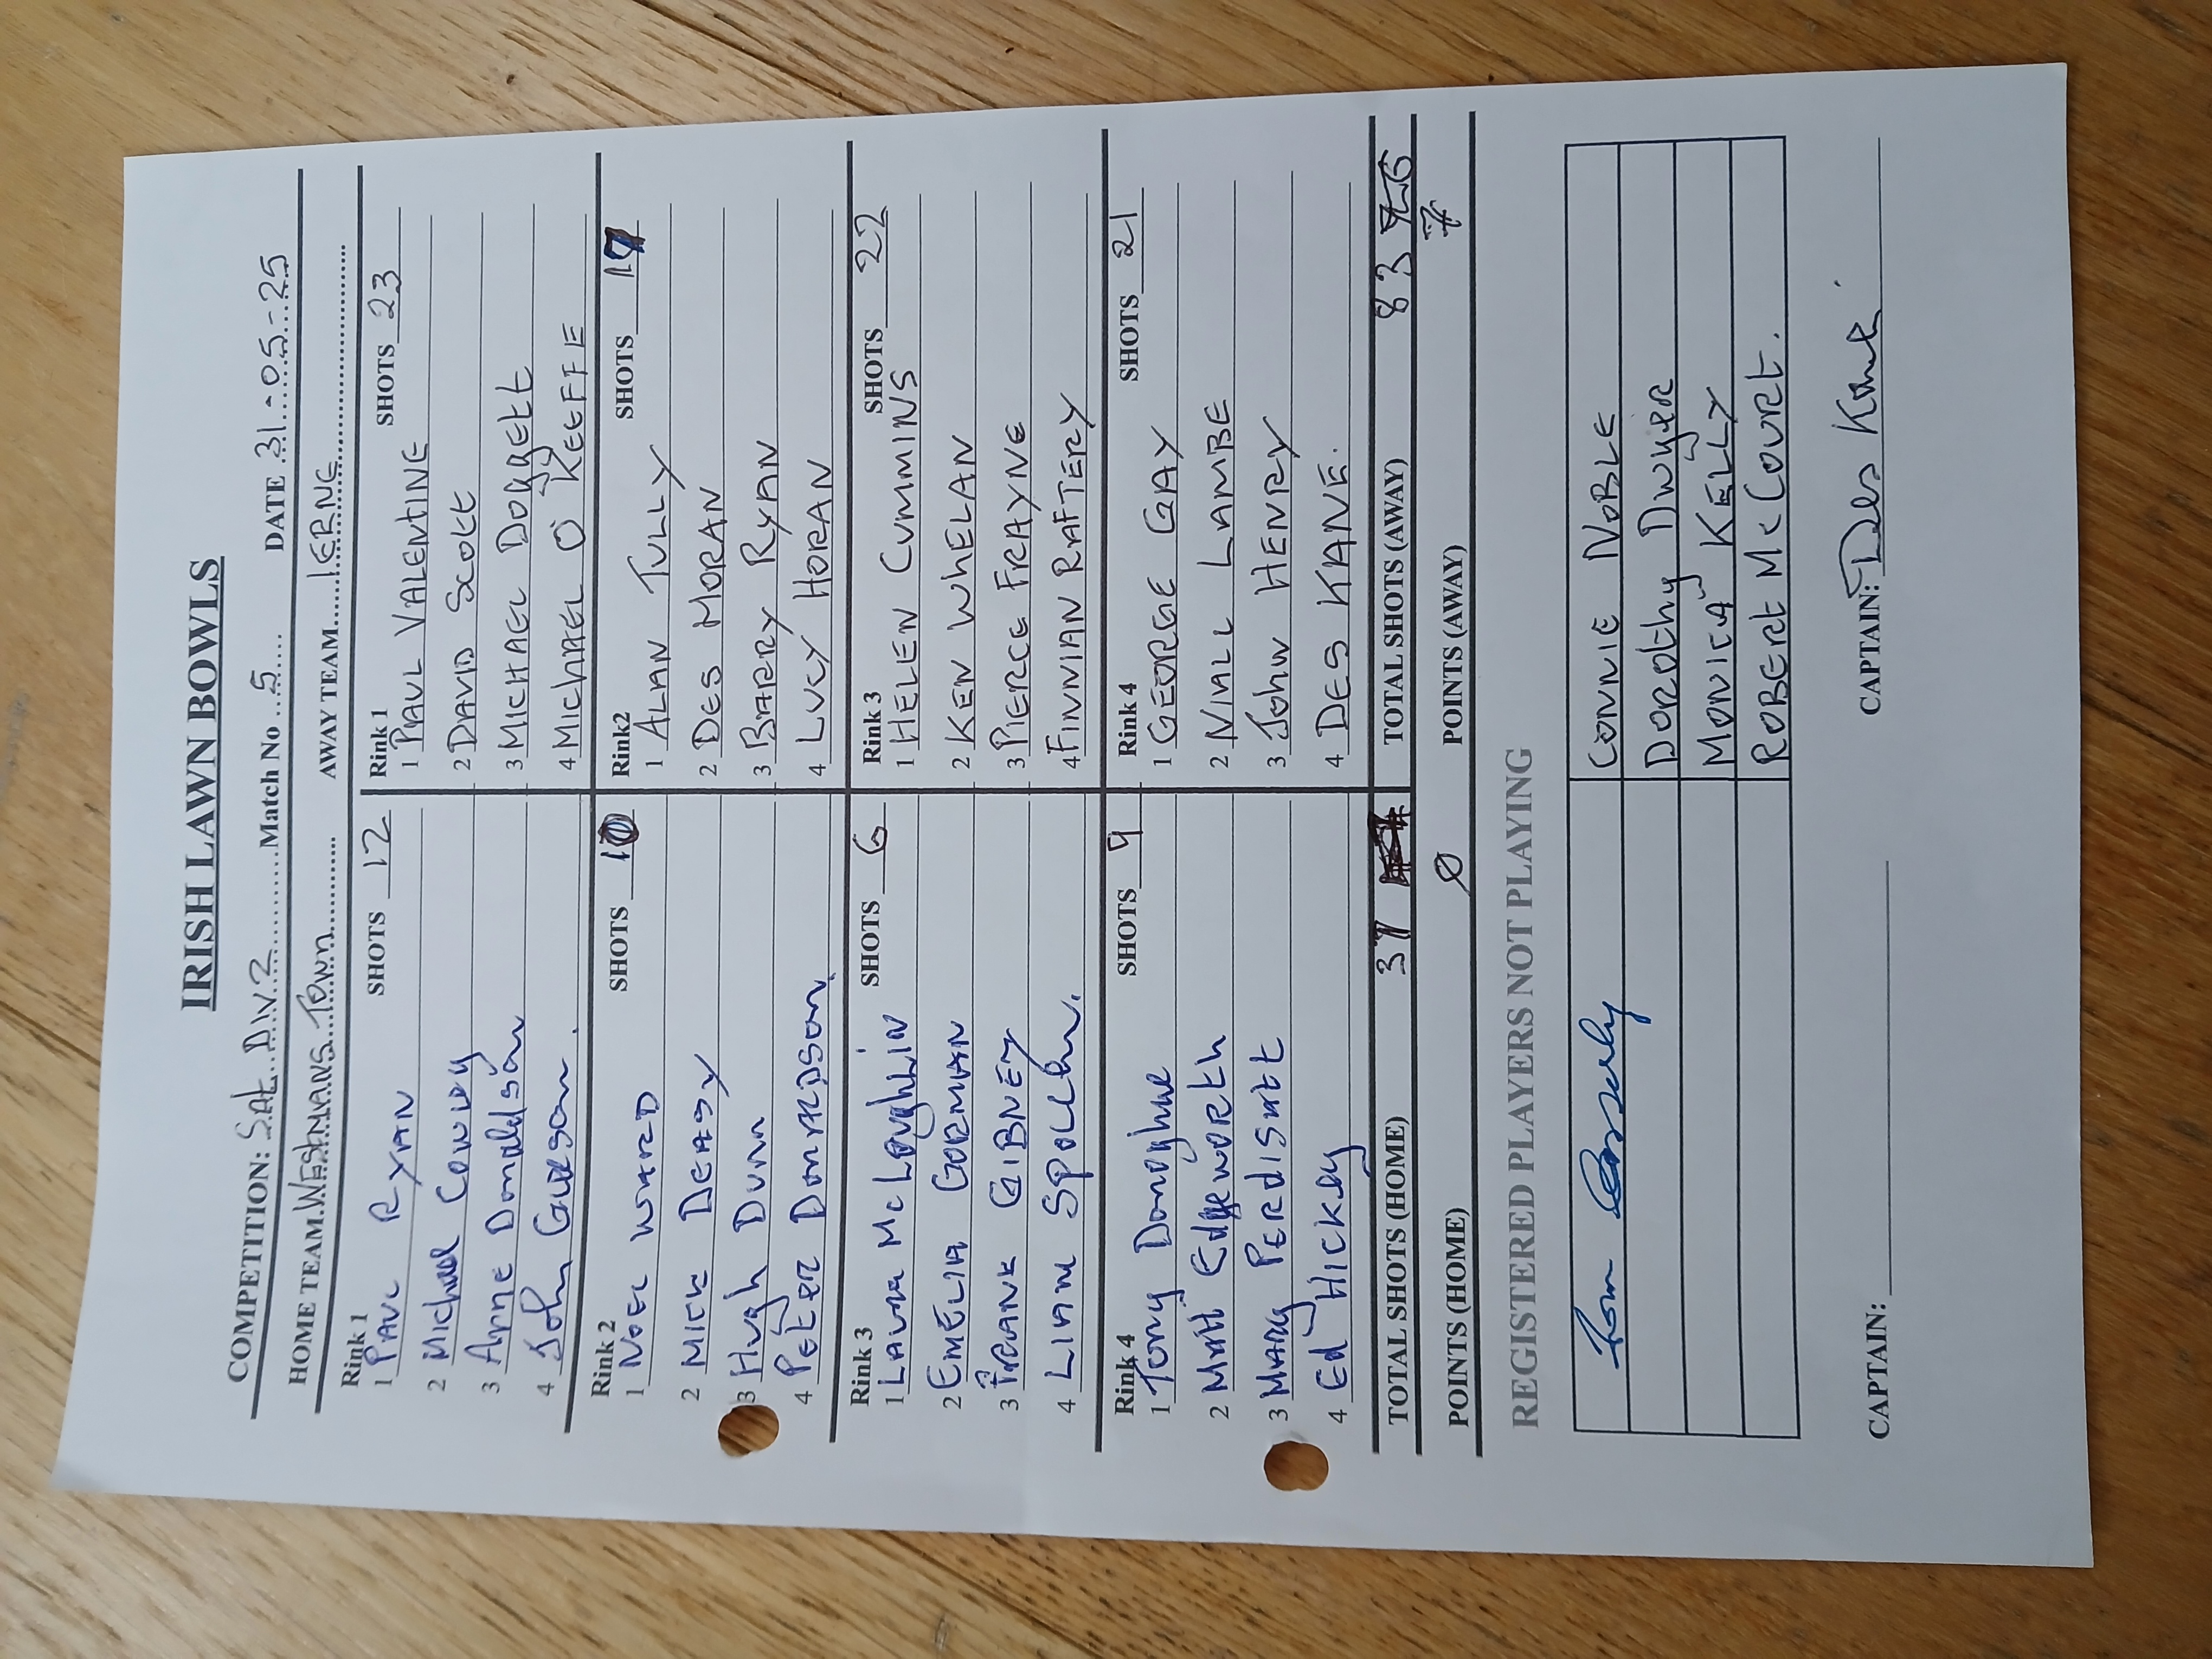 IRISH LAWN BOWLS
COMPETITION: Sat Div 2 Match No 5 DATE 31-05-25
HOME TEAM WESTMANSTOWN AWAY TEAM IERNE
Rink 1 SHOTS 12
1 PAUL RYAN
2 Michael Conway
3 Anne Donaldson
4 John
Rink 1 SHOTS 23
1 PAUL VALENTINE
2 DAVID Scott
3 MICHAEL Doggett
4 Michael O KEEFFE
Rink 2 SHOTS 10
1 NOEL WARD
2 MICK DEASY
3 Hugh Dunn
4 PETER DONALDSON
Rink2 SHOTS 17
1 ALAN TULLY
2 DES MORAN
3 BARRY RYAN
4 LUCY HORAN
Rink 3 SHOTS 6
1 LAURA Mc Loughlin
2 EMELIA GORMAN
3 FRANK GIBNEY
4 LIAM SPOLLEN.
Rink 3 SHOTS 22
1 HELEN CUMMINS
2 KEN WHELAN
3 PIERCE FRAYNE
4 FINNIAN RAFTERY
Rink 4 SHOTS 9
1 Tony Donoghue
2 Matt Edgeworth
3 MARY PERDISATT
4 Ed HICKEY
Rink 4 SHOTS 21
1 GEORGE GAY
2 NIALL LAMBE
3 John HENRY
4 DES KANE.
TOTAL SHOTS (HOME) 37 TOTAL SHOTS (AWAY) 83
POINTS (HOME) 0 POINTS (AWAY) 7
REGISTERED PLAYERS NOT PLAYING
Tom CONNIE NOBLE
Dorothy Dwyer
MONICA KELLY
ROBERT McCOURT.
CAPTAIN: CAPTAIN: Des Kane